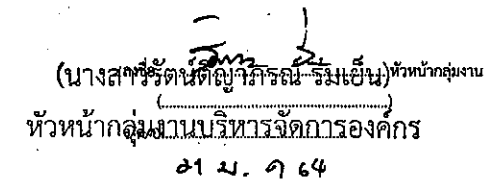 (นางสาวรัตน์ติญาภรณ์ ร่มเย็น) หัวหน้ากลุ่มงาน
(....................................................)
หัวหน้ากลุ่มงานบริหารจัดการองค์กร
21 ม. ค 64